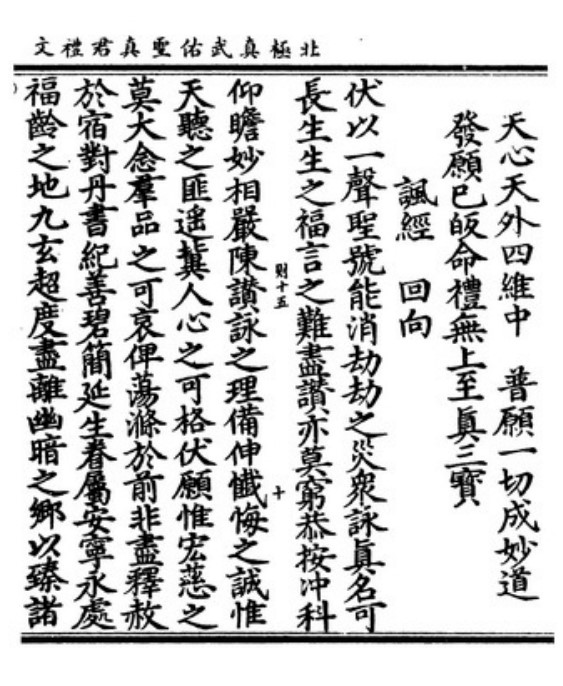 北極真武佑聖真君禮文
天心天外四維中　普願一切成妙道
發願已皈命禮無上至眞三寶
諷經　回向
伏以一聲聖號能消劫劫之災衆詠眞名可
長生生之福言之難盡讚亦莫窮恭按冲科
則十五
十
仰瞻妙相嚴陳讃詠之理備伸懺悔之誠惟
天聽之匪遥冀人心之可格伏願惟宏慈之
莫大念羣品之可哀俾蕩滌於前非盡釋赦
於宿對丹書紀善碧簡延生眷屬安寧永處
福齡之地九玄超度盡離幽暗之鄉以臻諸